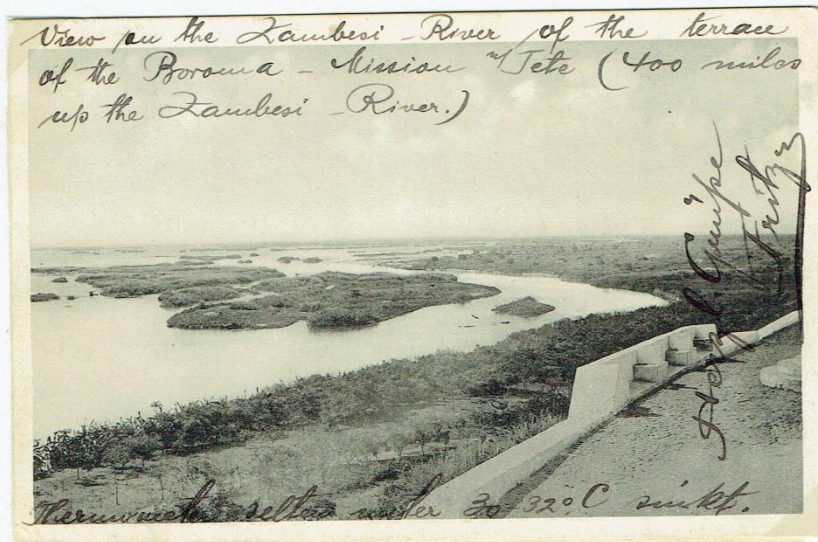 View on the Zambesi - River of the terrace
of the Boroma - Mission n/ Tete (400 miles
up the Zambesi - River.)
Herzl. Grüße
Fritz
Thermometer selten unter 30-32° C sinkt.